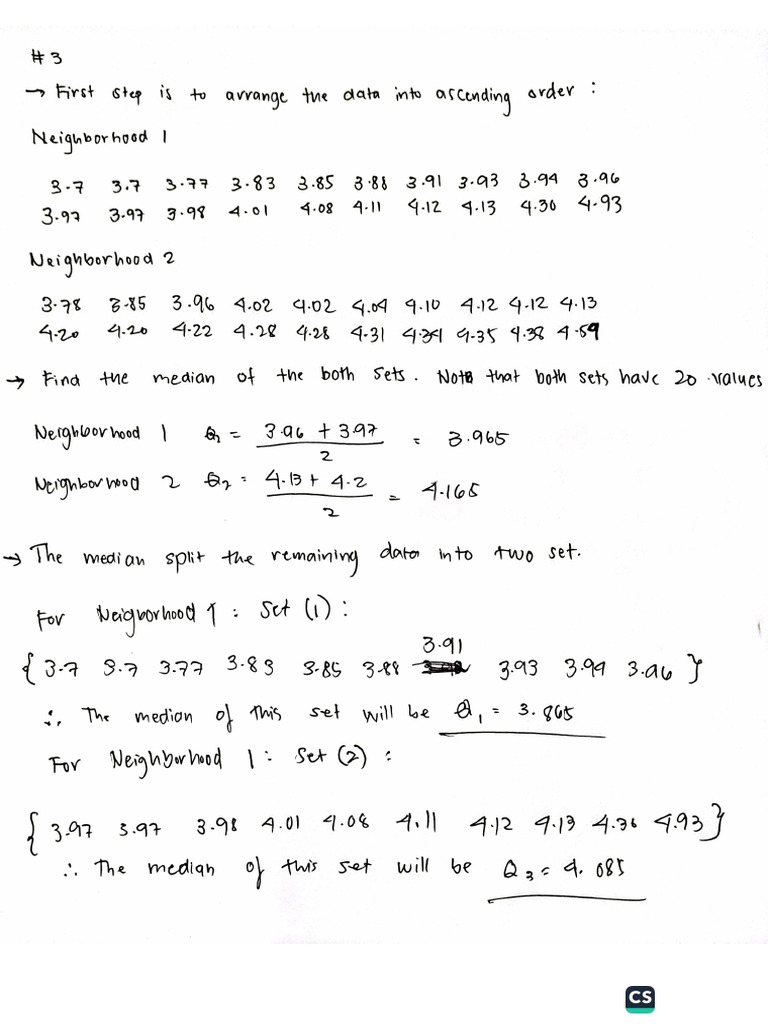 #3
→ First step is to arrange the data into ascending order :
Neighborhood 1
3.7 3.7 3.77 3.83 3.85 3.88 3.91 3.93 3.94 3.96
3.97 3.97 3.98 4.01 4.08 4.11 4.12 4.13 4.36 4.93
Neighborhood 2
3.78 3.85 3.96 4.02 4.02 4.04 4.10 4.12 4.12 4.13
4.20 4.20 4.22 4.28 4.28 4.31 4.34 4.35 4.38 4.59
→ Find the median of the both sets. Note that both sets have 20 values
Neighborhood 1 Q2 = 3.96 + 3.97 / 2 = 3.965
Neighborhood 2 Q2 = 4.13 + 4.2 / 2 = 4.165
→ The median split the remaining data into two set.
For Neigborhood 1 : Set (1) :
{ 3.7 3.7 3.77 3.83 3.85 3.88 3.91 3.93 3.94 3.96 }
∴ The median of this set will be Q1 = 3.865
For Neighborhood 1 : Set (2) :
{ 3.97 3.97 3.98 4.01 4.08 4.11 4.12 4.13 4.36 4.93 }
∴ The median of this set will be Q3 = 4.085
CS